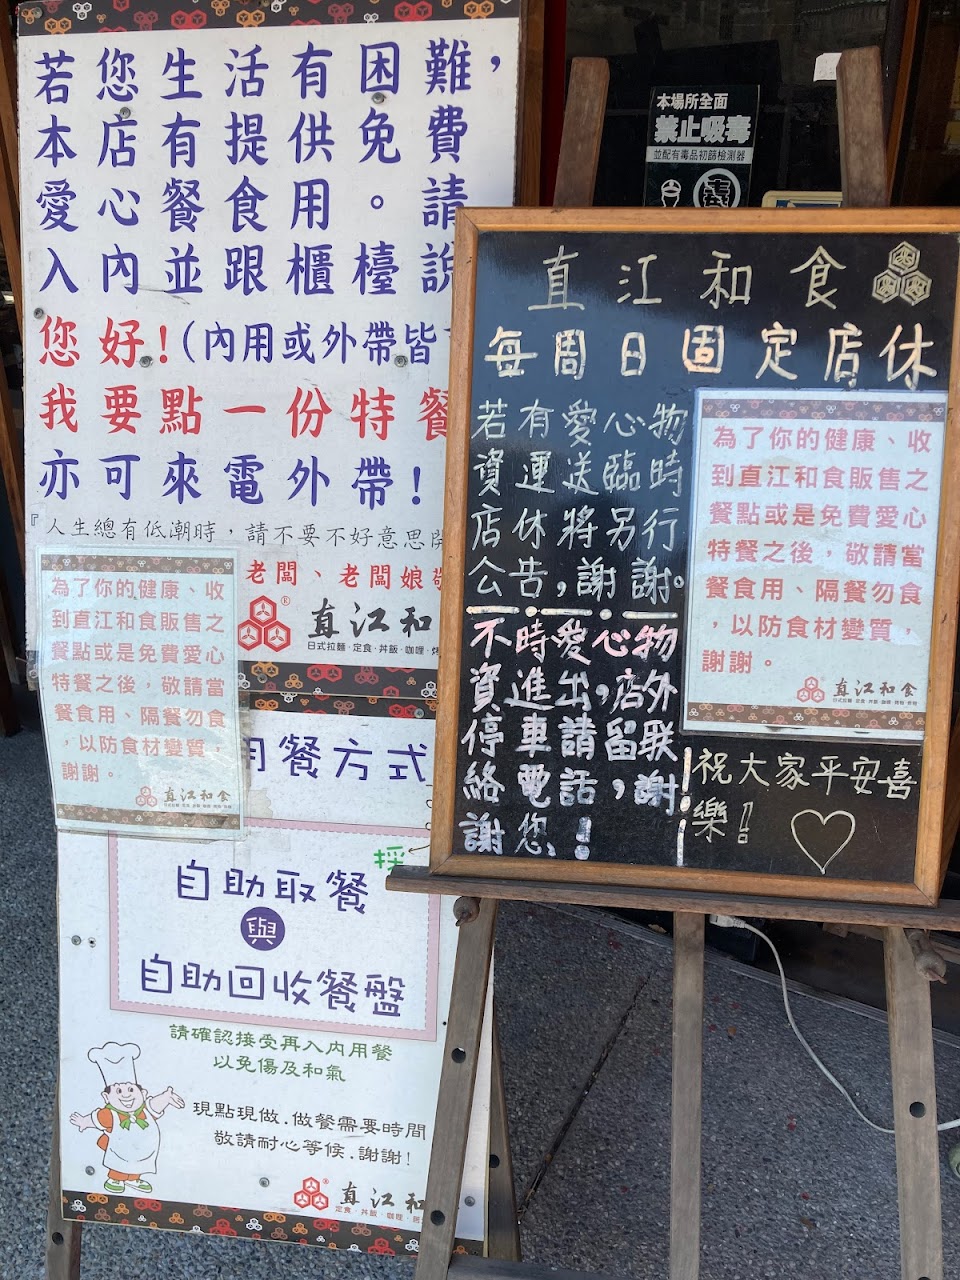 若您生活有困難，
本店有提供免費
愛心餐食用。請
入內並跟櫃檯說
您好！(內用或外帶皆
我要點一份特餐
亦可來電外帶！
『人生總有低潮時，請不要不好意思
老闆、老闆娘
直江和
日式拉麵·定食·丼飯·咖哩·
為了你的健康、收
到直江和食販售之
餐點或是免費愛心
特餐之後，敬請當
餐食用、隔餐勿食
，以防食材變質，
謝謝。
直江和食
用餐方式
採
自助取餐
與
自助回收餐盤
請確認接受再入內用餐
以免傷及和氣
現點現做.做餐需要時間
敬請耐心等候.謝謝！
直江和
定食·丼飯·咖哩·
本場所全面
禁止吸毒
並配有毒品初篩檢測器
毒
直江和食
每周日固定店休
若有愛心物
資運送臨時
店休將另行
公告,謝謝。
不時愛心物
資進出,店外
停車請留聯
絡電話,謝
謝您！
為了你的健康、收
到直江和食販售之
餐點或是免費愛心
特餐之後，敬請當
餐食用、隔餐勿食
，以防食材變質，
謝謝。
直江和食
祝大家平安喜
樂！